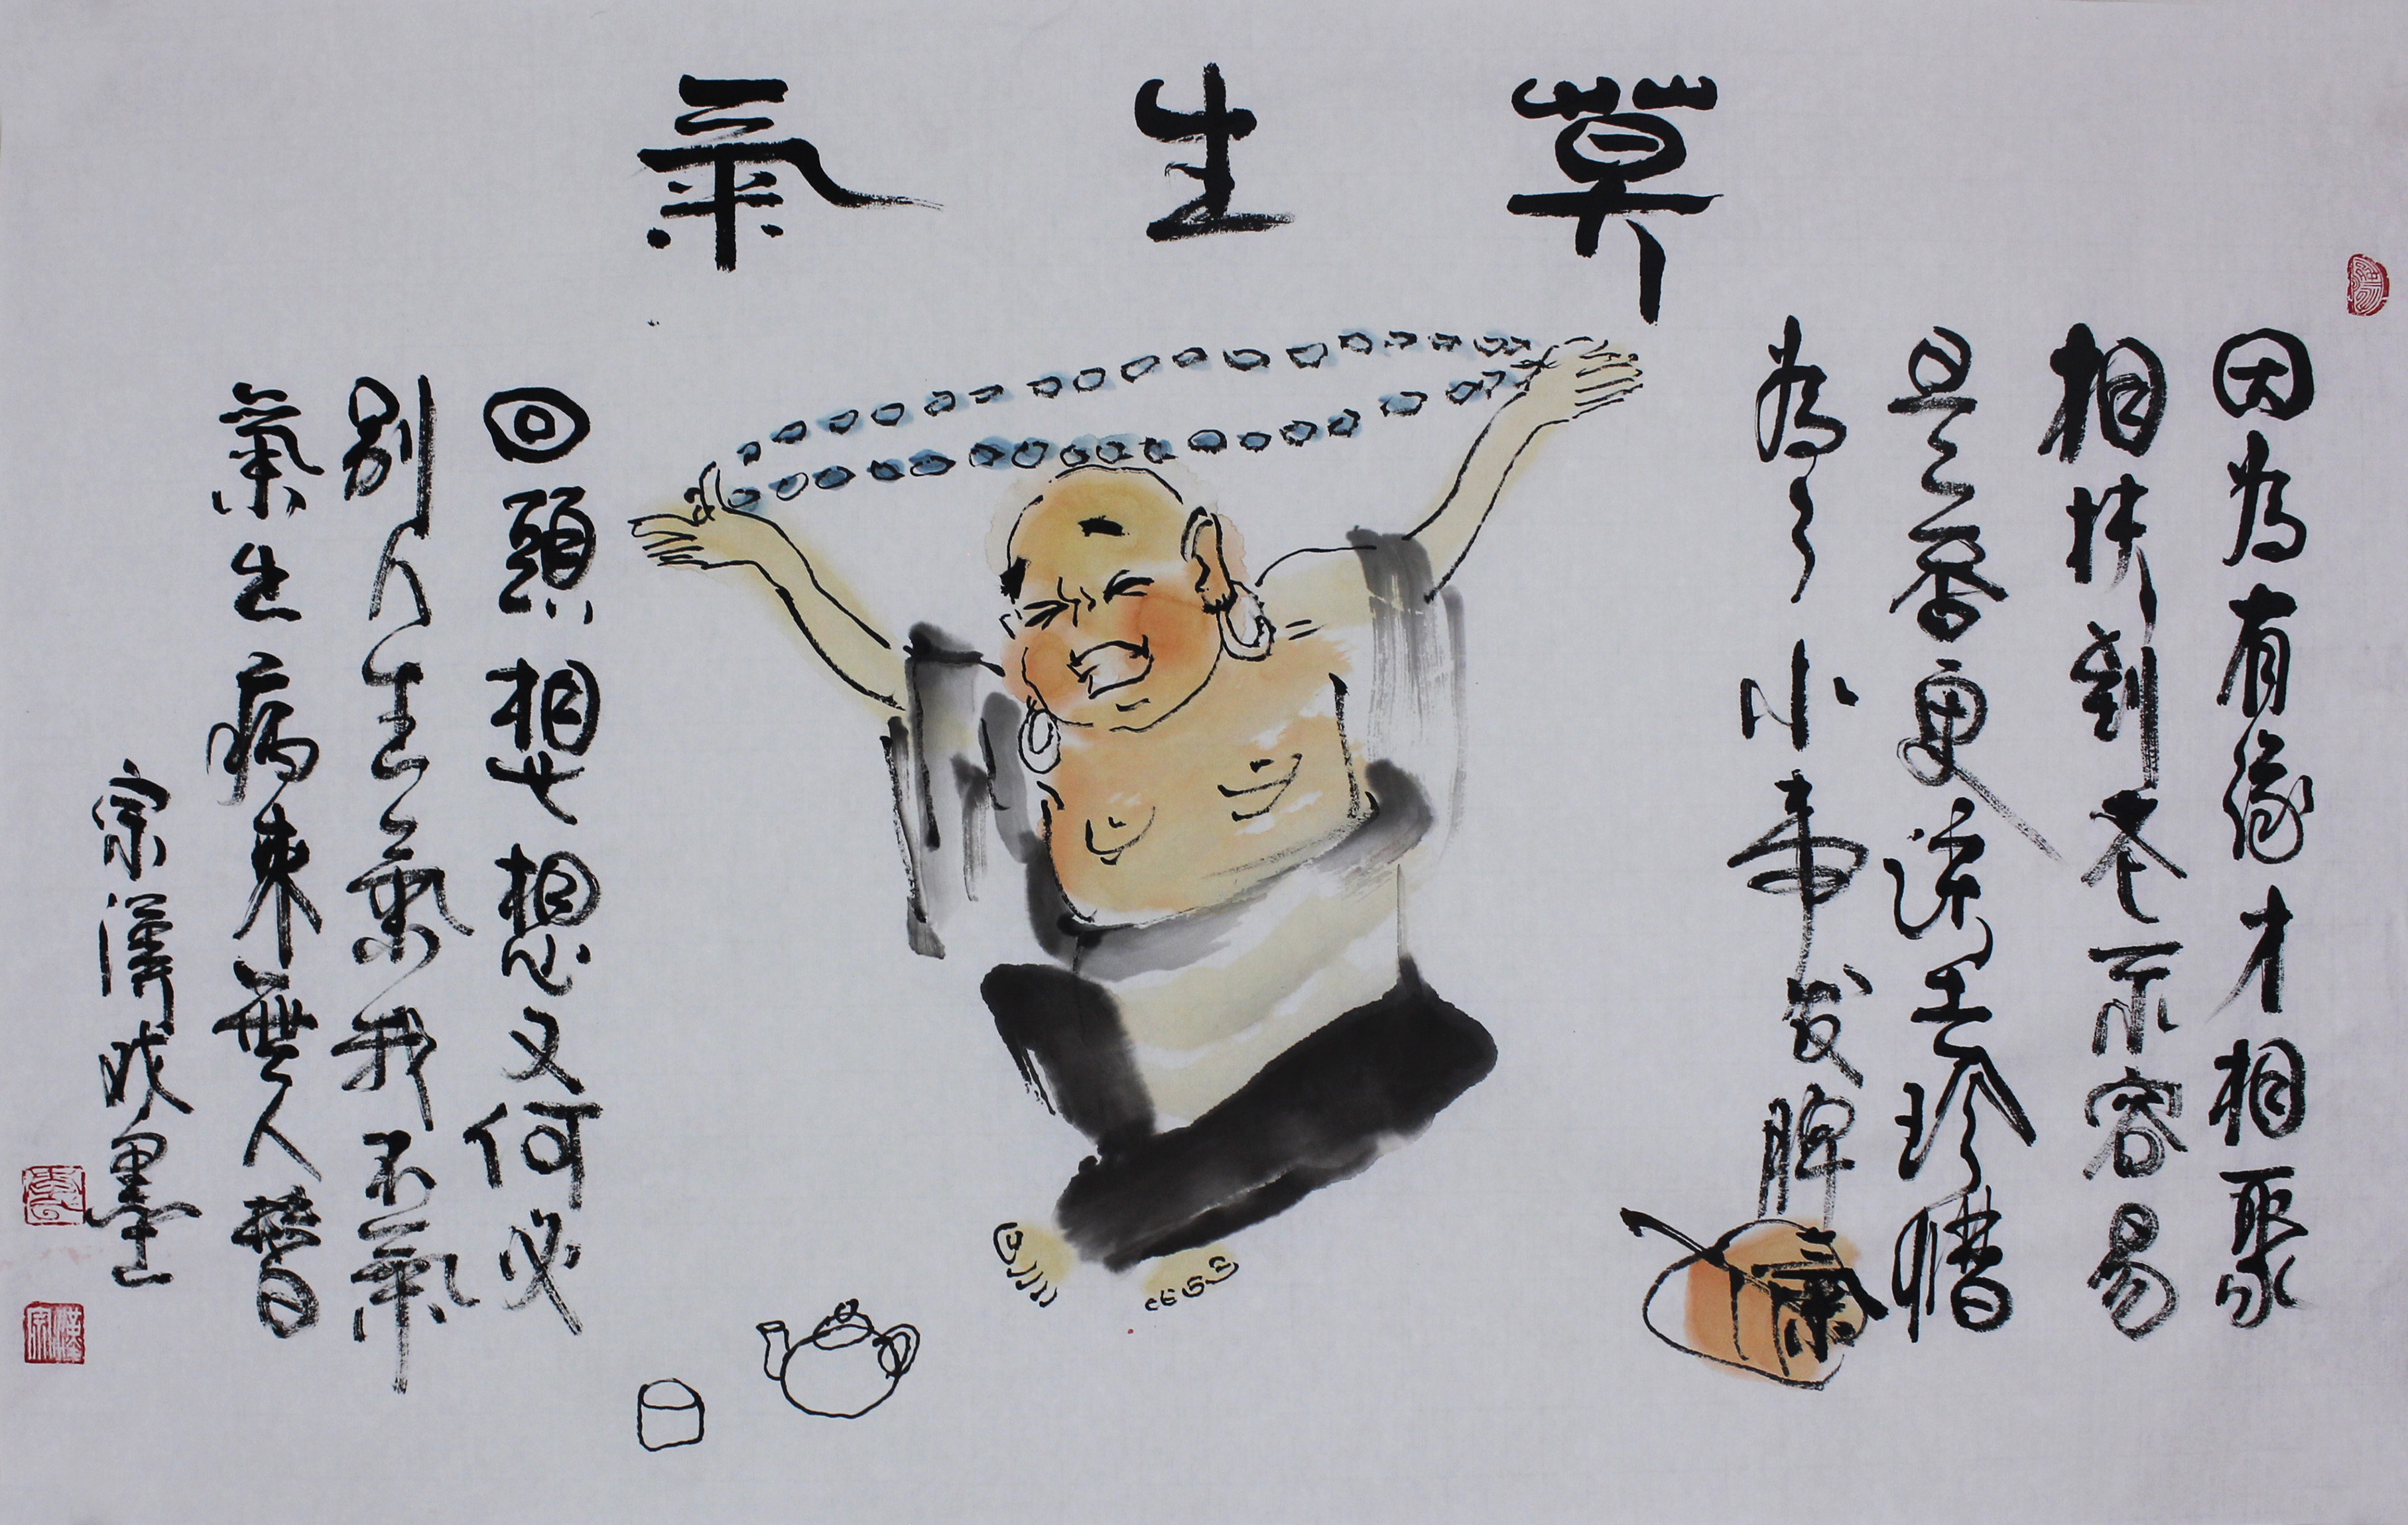 莫生氣
因為有緣才相聚
相扶到老不容易
是否更該去珍惜
為了小事發脾氣
回頭想想又何必
別人生氣我不氣
氣出病來無人替
宗漢戏墨